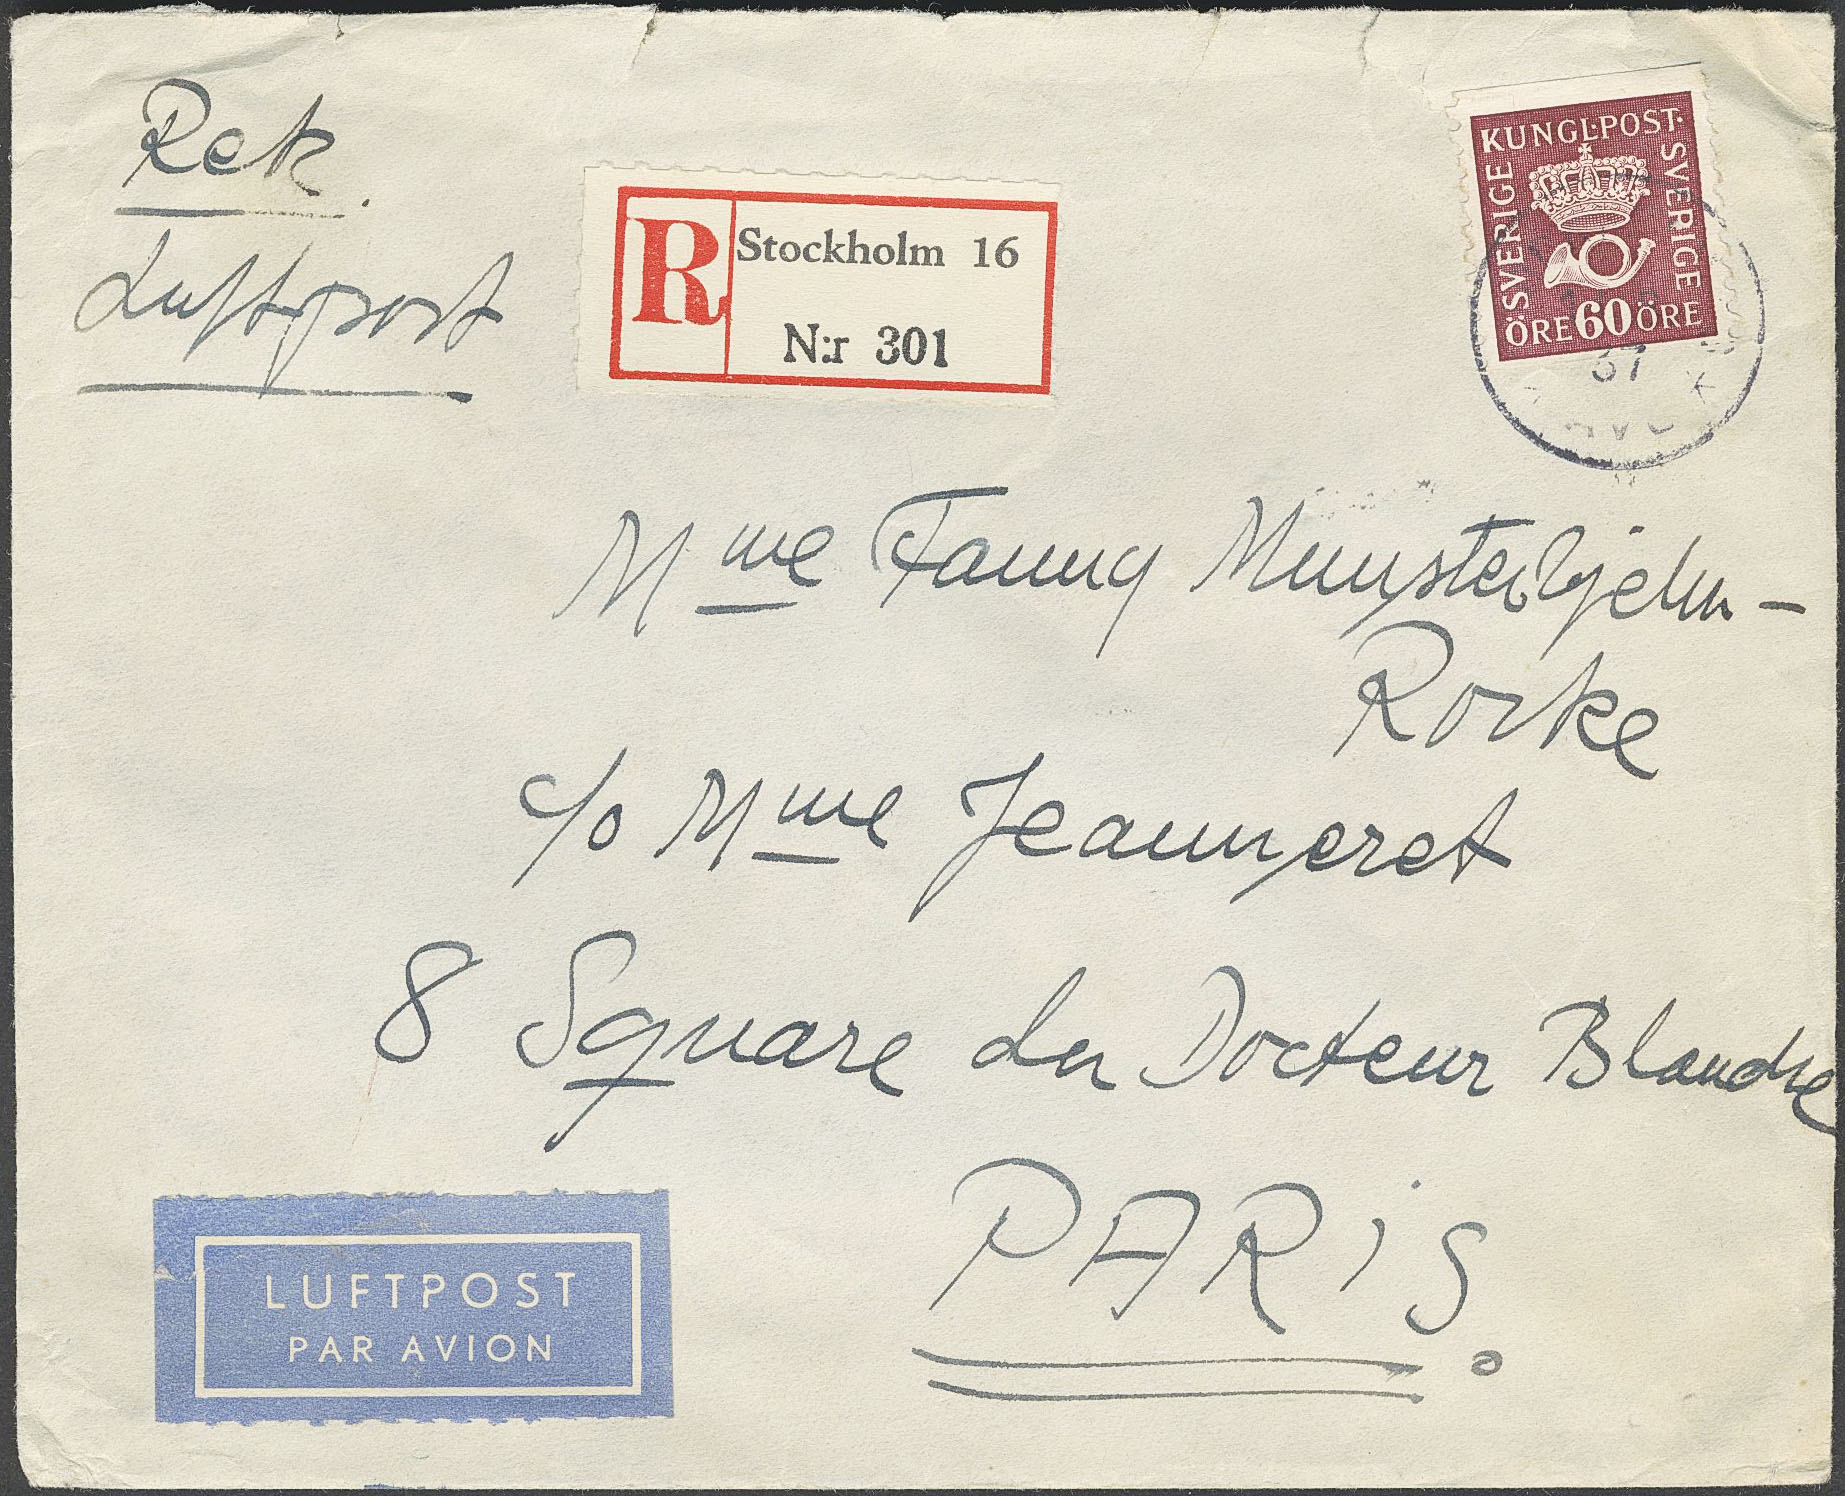 Rek.
Luftpost
R
Stockholm 16
N:r 301
KUNGL·POST·
SVERIGE
SVERIGE
ÖRE 60 ÖRE
37
Mme Fanny Munsterhjelm-
Rorke
c/o Mme Jeanneret
8 Square du Docteur Blanche
PARiS.
LUFTPOST
PAR AVION